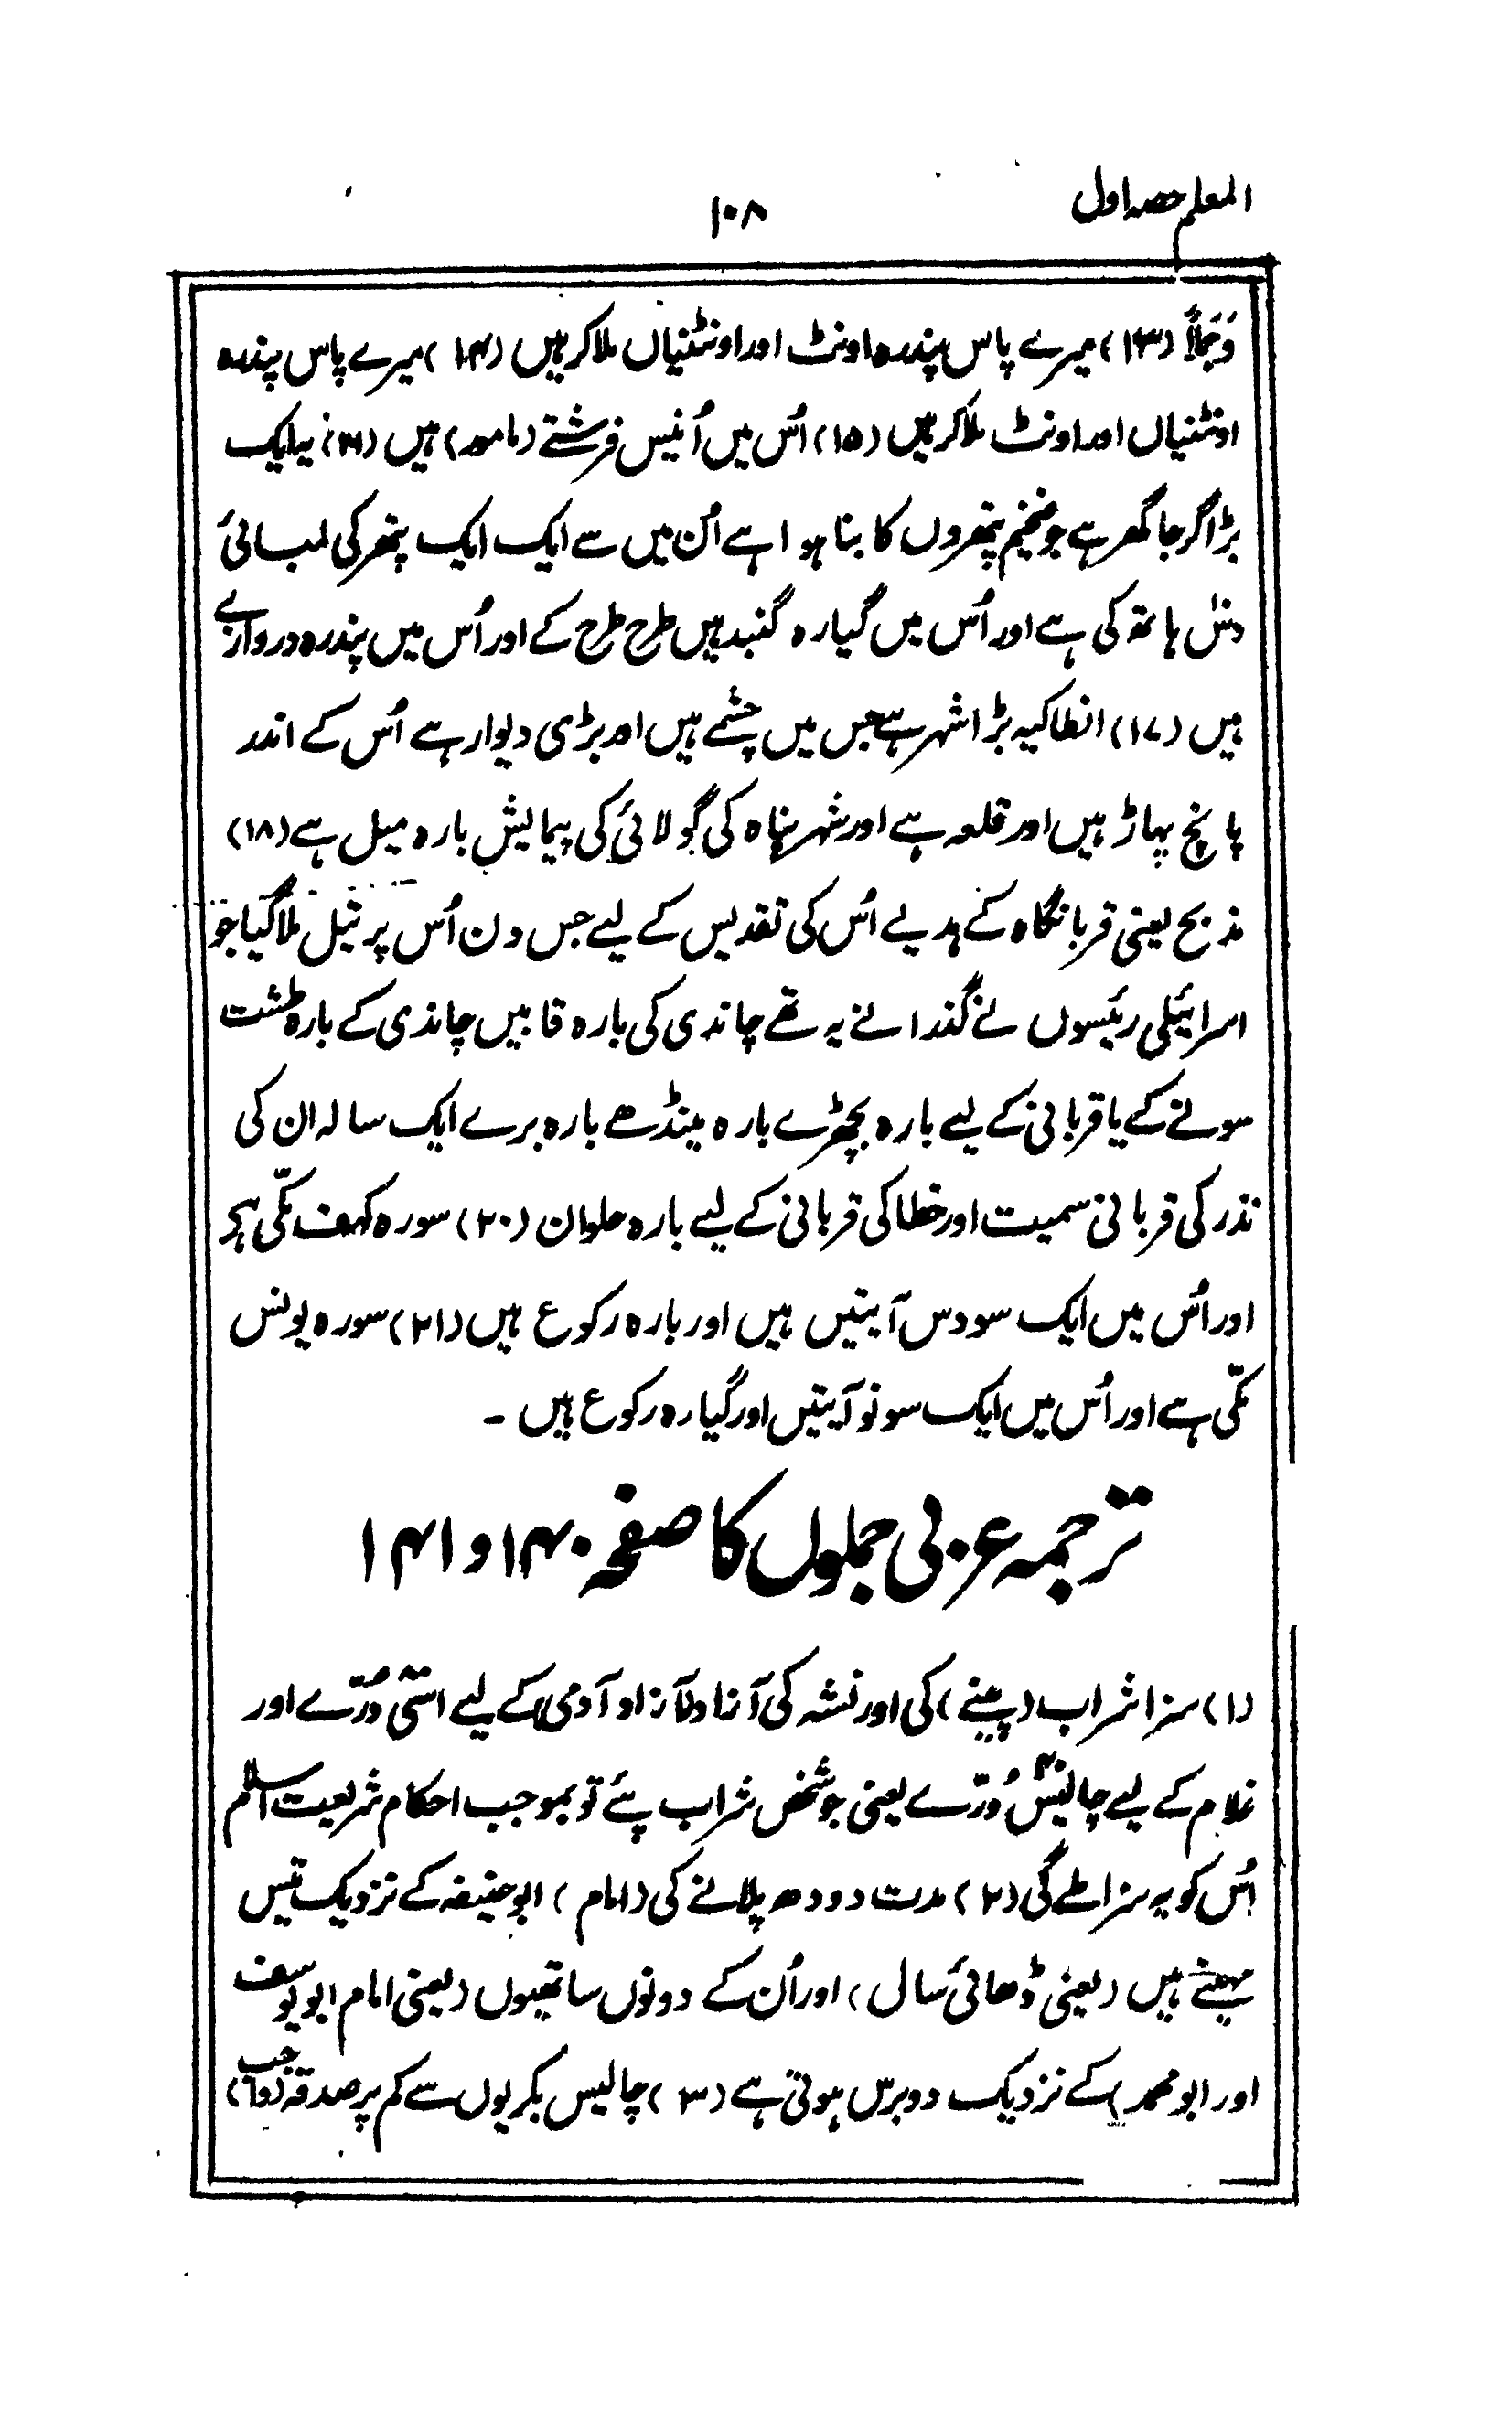 المعلم حصہ اول
۱۰۸
وَجَمَلاً (۱۳) میرے پاس پندرہ اونٹ اور اونٹنیاں ملا کر ہیں (۱۴) میرے پاس پندرہ
اونٹنیاں اور اونٹ ملا کر ہیں (۱۵) اُس میں اُنیس فرشتے (مامور) ہیں (۱۶) یہ ایک
بڑا گرجا گھر ہے جو ضخیم پتھروں کا بنا ہوا ہے اُن میں سے ایک ایک پتھر کی لمبائی
دس ہاتھ کی ہے اور اُس میں گیارہ گنبد ہیں طرح طرح کے اور اُس میں پندرہ دروازے
ہیں (۱۷) انطاکیہ بڑا شہر ہے جس میں چشمے ہیں اور بڑی دیوار ہے اُس کے اندر
پانچ پہاڑ ہیں اور قلعہ ہے اور شہر پناہ کی گولائی کی پیمایش بارہ میل ہے (۱۸)
مذبح یعنی قربانگاہ کے ہدیے اُس کی تقدیس کے لیے جس دن اُس پر تیل ملا گیا جو
اسرائیلی رئیسوں نے گذرانے یہ تھے چاندی کی بارہ قابیں چاندی کے بارہ طشت
سونے کے یا قربانی کے لیے بارہ بچھڑے بارہ مینڈھے بارہ برے ایک سالہ ان کی
نذر کی قربانی سمیت اور خطا کی قربانی کے لیے بارہ حلوان (۲۰) سورہ کہف مکّی ہے
اور اُس میں ایک سو دس آیتیں ہیں اور بارہ رکوع ہیں (۲۱) سورہ یونس
مکّی ہے اور اُس میں ایک سو نو آیتیں اور گیارہ رکوع ہیں ۔
ترجمہ عربی جملوں کا صفحہ ۱۴۰ و ۱۴۱
(۱) سزا شراب (پینے) کی اور نشہ کی آزاد (آزاد آدمی) کے لیے اسّی دُرّے اور
غلام کے لیے چالیس دُرّے یعنی جو شخص شراب پئے تو بموجب احکام شریعت اسلام
اُس کو یہ سزا ملے گی (۲) مدت دودھ پلانے کی (امام) ابو حنیفہ کے نزدیک تیس
مہینے ہیں (یعنی ڈھائی سال) اور اُن کے دونوں ساتھیوں (یعنی امام ابو یوسف
اور ابو محمد) کے نزدیک دو برس ہوتی ہے (۳) چالیس بکریوں سے کم پر صدقہ (واجب)